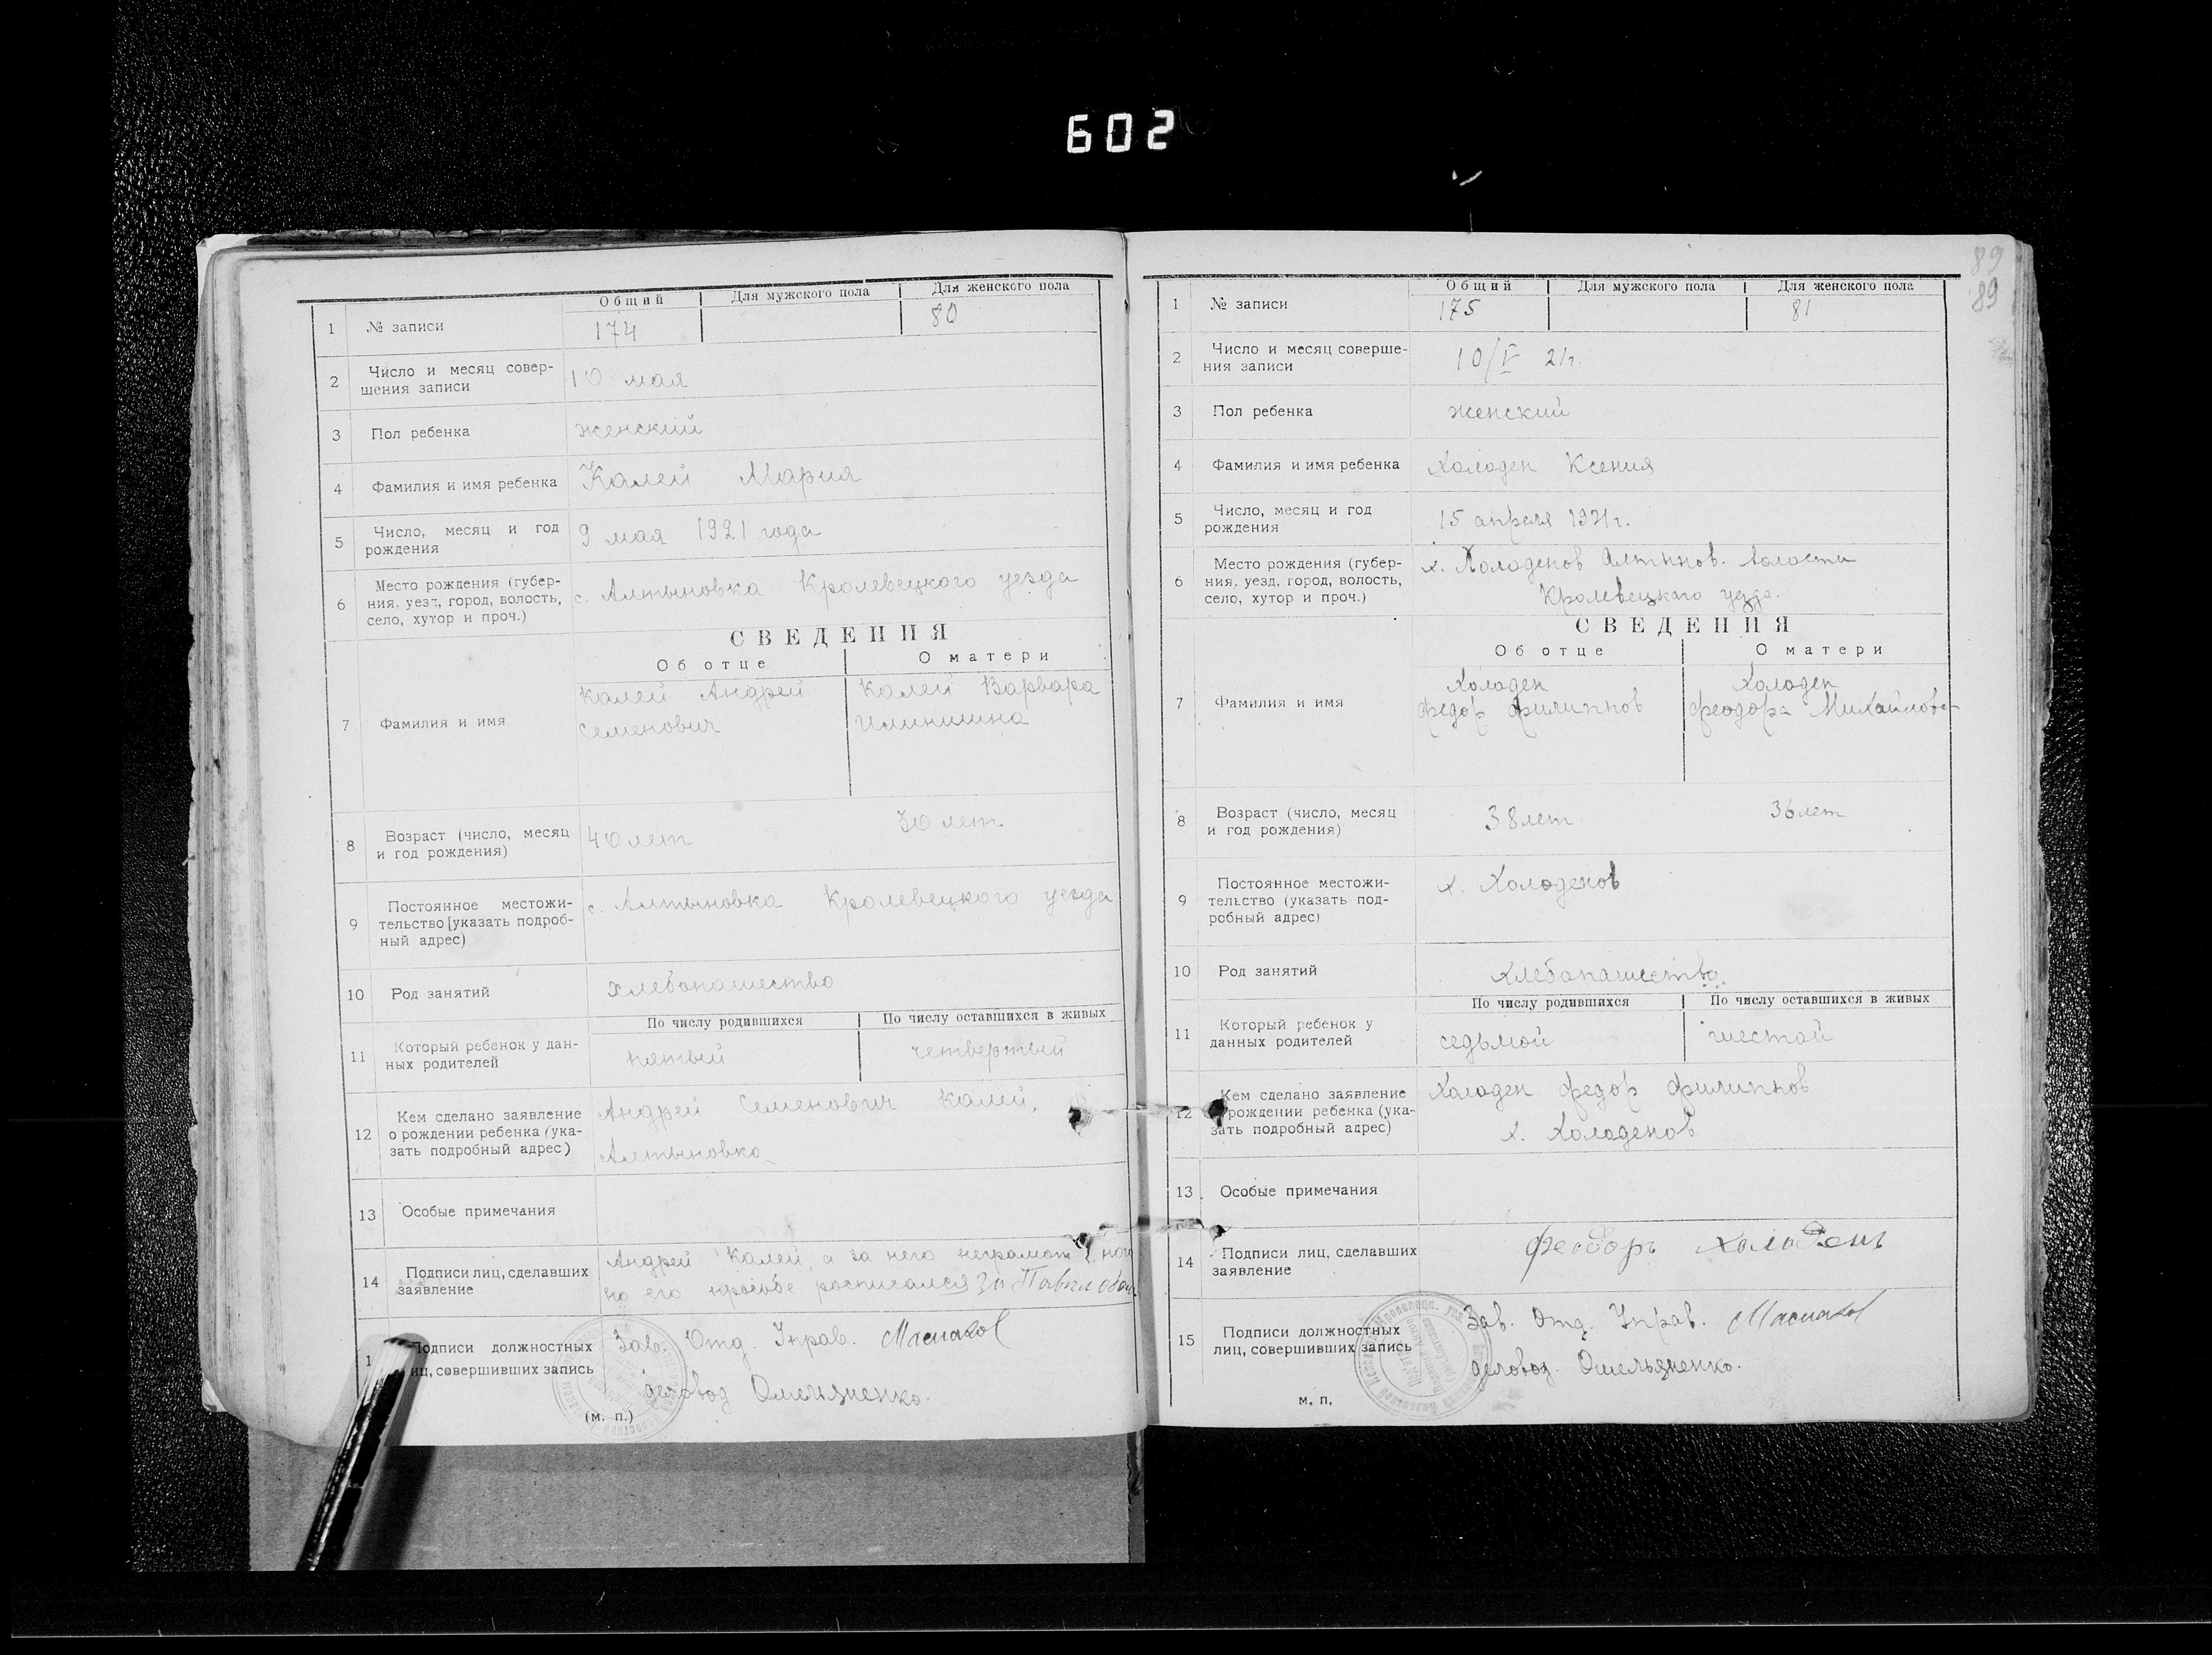 602
Общий Для мужского пола Для женского пола
1 № записи 174 80
2 Число и месяц совер-
шения записи 10 мая
3 Пол ребенка женский
4 Фамилия и имя ребенка Калей Мария
5 Число, месяц и год
рождения 9 мая 1921 года
6 Место рождения (губер-
ния, уезд, город, волость,
село, хутор и проч.) с. Алтыновка Кролевецкого уезда
СВЕДЕНИЯ
Об отце О матери
7 Фамилия и имя
Калей Андрей Калей Варвара
Семенович
8 Возраст (число, месяц
и год рождения) 40 лет 30 лет
9 Постоянное местожи-
тельство [указать подроб-
ный адрес) с. Алтыновка Кролевецкого уезда
10 Род занятий хлебопашество
По числу родившихся По числу оставшихся в живых
11 Который ребенок у дан-
ных родителей пятый четвертый
12 Кем сделано заявление
о рождении ребенка (ука-
зать подробный адрес)
Андрей Семенович Калей,
Алтыновка
13 Особые примечания
14 Подписи лиц, сделавших
заявление
Андрей Калей, а за него неграмот
по его просьбе расписался
1 Подписи должностных
иц, совершивших запись
Зав. Отд. Управ.
деловод Омельяненко.
(м. п.)
89
89
Общий Для мужского пола Для женского пола
1 № записи 175 81
2 Число и месяц соверше-
ния записи 10/V 21г.
3 Пол ребенка женский
4 Фамилия и имя ребенка Холоден Ксения
5 Число, месяц и год
рождения 15 апреля 1921г.
6 Место рождения (губер-
ния, уезд, город, волость,
село, хутор и проч.)
х. Холоденов Алтынов. волости
Кролевецкаго уезда.
СВЕДЕНИЯ
Об отце О матери
7 Фамилия и имя
Холоден Холоден
Федор Филиппов Феодора Михайлова
8 Возраст (число, месяц
и год рождения) 38 лет 36 лет
9 Постоянное местожи-
тельство (указать под-
робный адрес) х. Холоденов
10 Род занятий хлебопашество
По числу родившихся По числу оставшихся в живых
11 Который ребенок у
данных родителей седьмой шестой
12 Кем сделано заявление
рождении ребенка (ука-
зать подробный адрес)
Холоден Федор Филиппов
х. Холоденов
13 Особые примечания
14 Подписи лиц, сделавших
заявление Феодоръ Холоденъ
15 Подписи должностных
лиц, совершивших запись
Зав. Отд. Управ.
деловод. Омельяненко.
м. п.